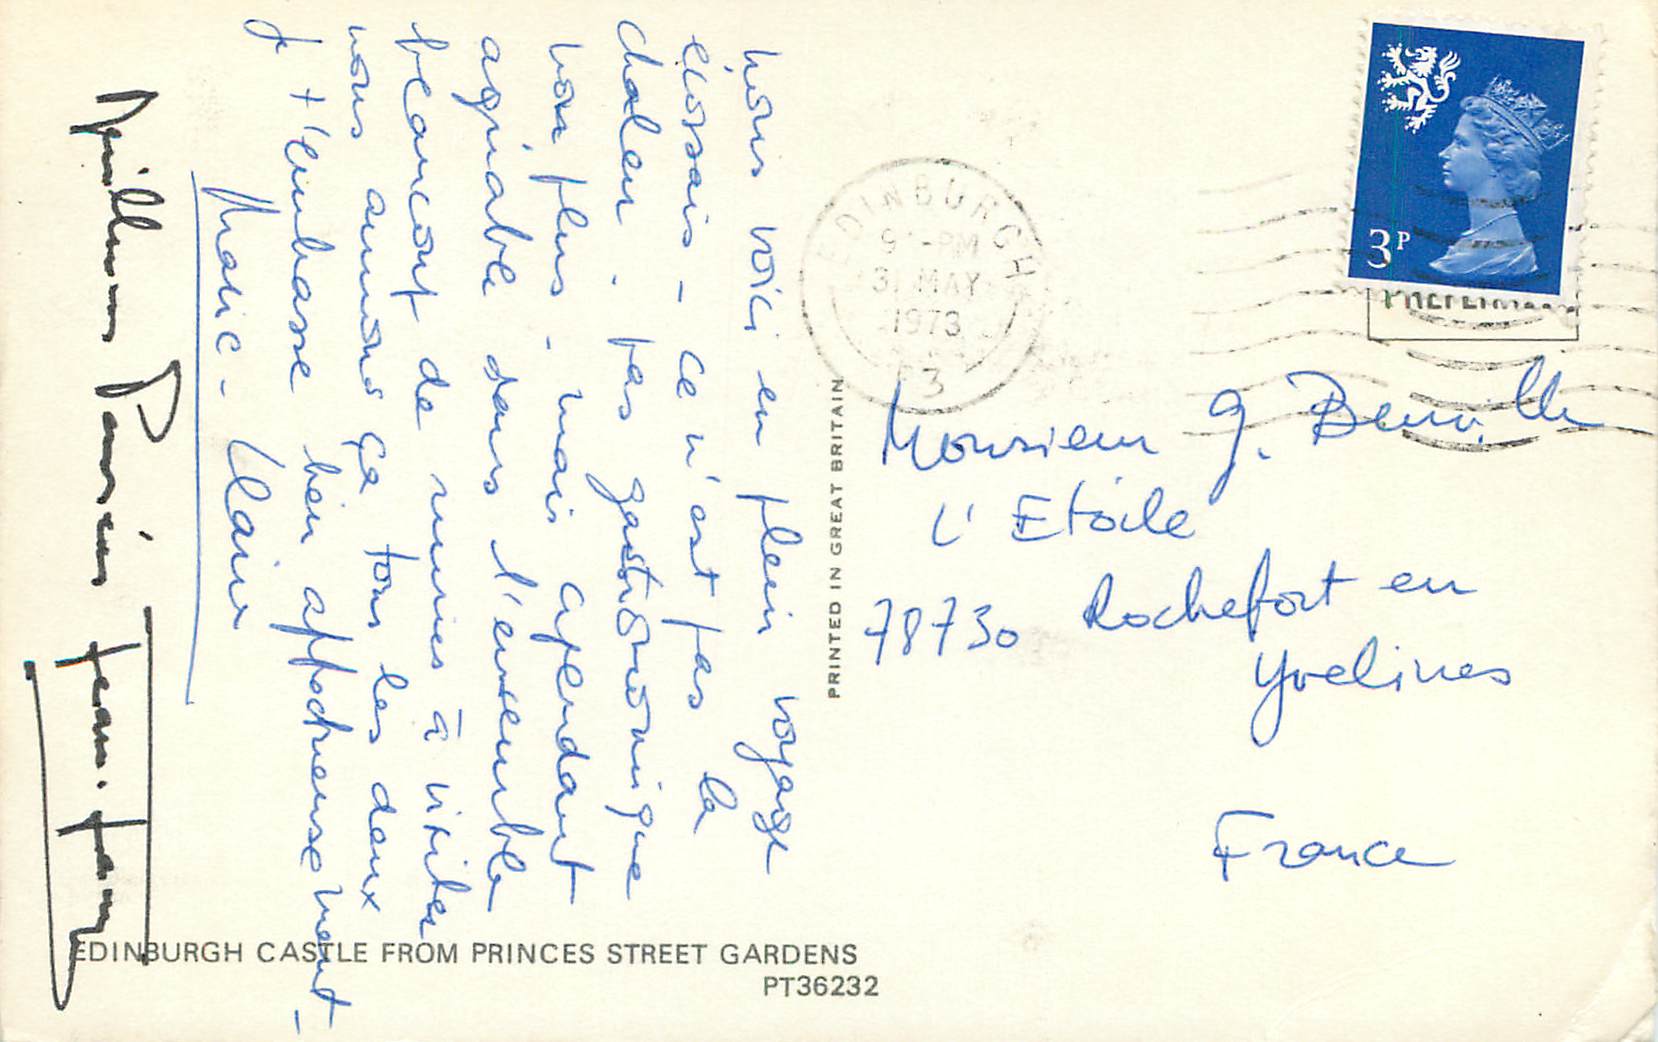 nous voici en plein voyage
écossais - ce n'est pas la
chaleur. pas gastronomique
non plus - mais cependant
agréable dans l'ensemble
beaucoup de ruines à visiter
nous aimons ça tous les deux
J t'embrasse bien affectueusement -
Marie - Claire
Meilleurs
Jean-Jacq
EDINBURGH
9 -PM
31 MAY
1973
3
3P
PRINTED IN GREAT BRITAIN
Monsieur G.
L' Etoile
78730 Rochefort en
Yvelines
France
EDINBURGH CASTLE FROM PRINCES STREET GARDENS
PT36232